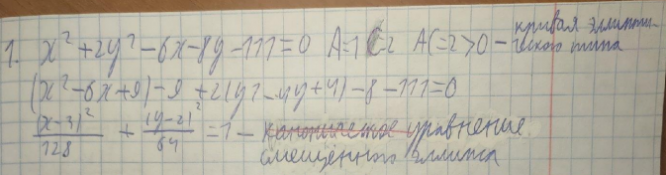 1. x² + 2y² - 6x - 8y - 111 = 0 A=1 C=2 AC=2>0 - кривая эллипти-
ческого типа
(x² - 6x + 9) - 9 + 2(y² - 4y + 4) - 8 - 111 = 0
(x-3)²/128 + (y-2)²/64 = 1 - каноническое уравнение
смещенного эллипса